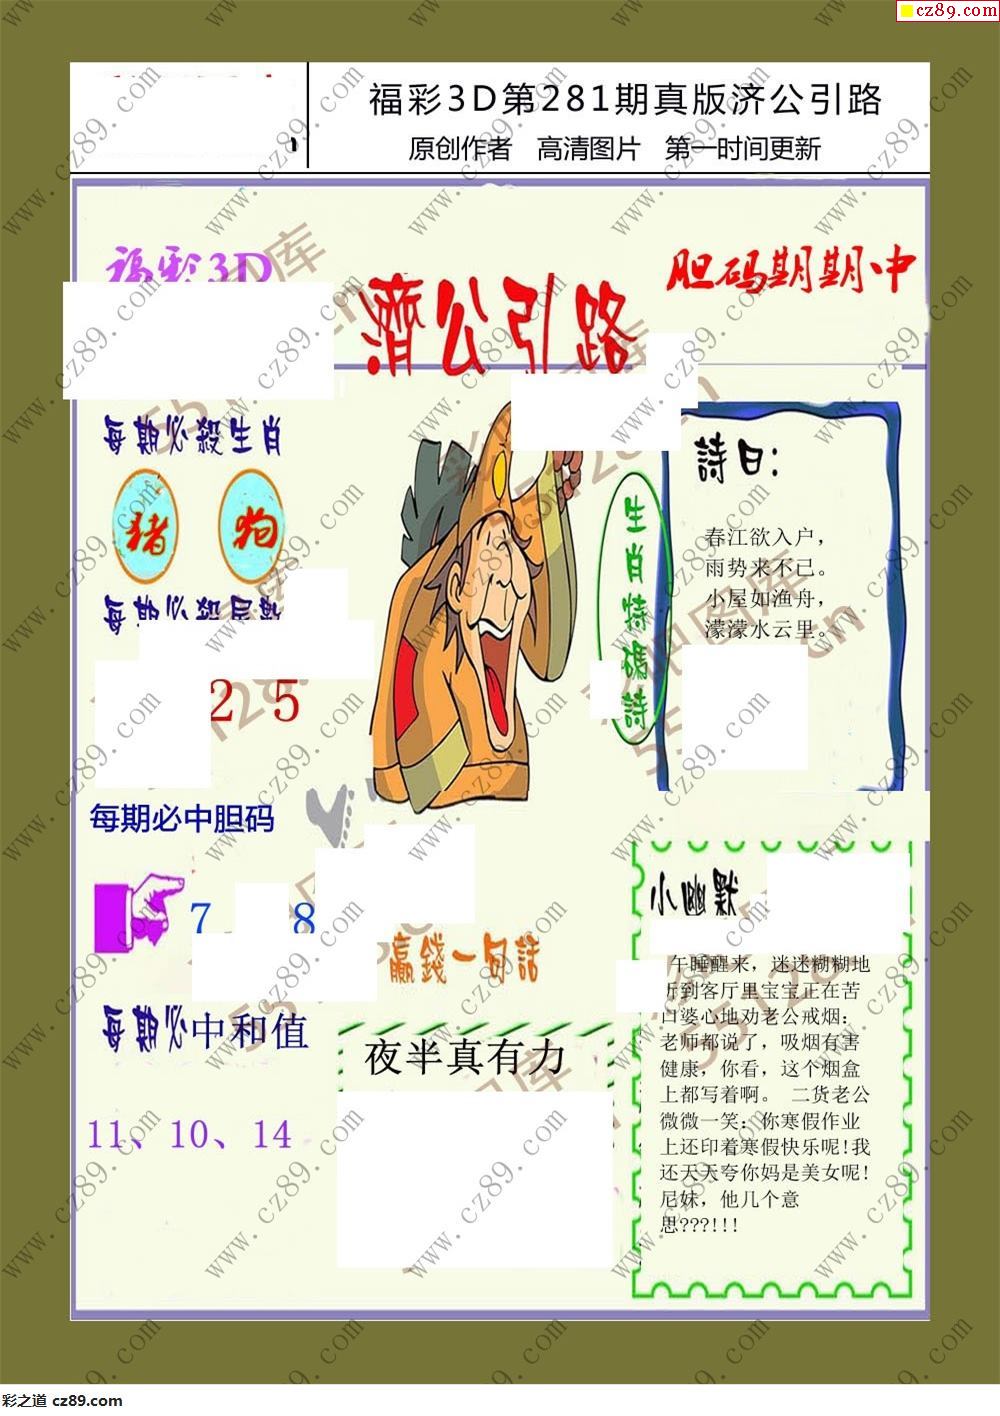 cz89.com
福彩3D第281期真版济公引路
原创作者 高清图片 第一时间更新
福彩3D
濟公引路
胆码期期中
每期必殺生肖
猪 狗
每期必殺尾數
2 5
每期必中胆码
7 8
每期必中和值
11、10、14
生肖特碼詩
詩曰:
春江欲入户，
雨势来不已。
小屋如渔舟，
濛濛水云里。
赢錢一句話
夜半真有力
小幽默
午睡醒来，迷迷糊糊地
到客厅里宝宝正在苦
口婆心地劝老公戒烟：
老师都说了，吸烟有害
健康，你看，这个烟盒
上都写着啊。 二货老公
微微一笑：你寒假作业
上还印着寒假快乐呢!我
还天天夸你妈是美女呢!
尼妹，他几个意
思???!!!
www.cz89.com
彩之道 cz89.com